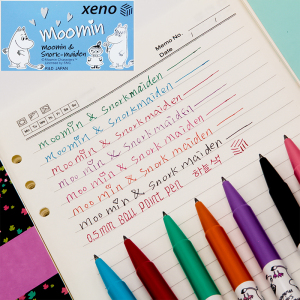 xeno
Moomin
Moomin &
Snork-maiden
© Moomin Characters™
XSO JAPAN
Memo No.
Date / /
Moomin & Snorkmaiden
Moomin & Snorkmaiden
Moomin & Snorkmaiden
Moomin & Snorkmaiden
Moomin & Snorkmaiden
Moomin & Snorkmaiden
0.5mm BALL POINT PEN 하늘색